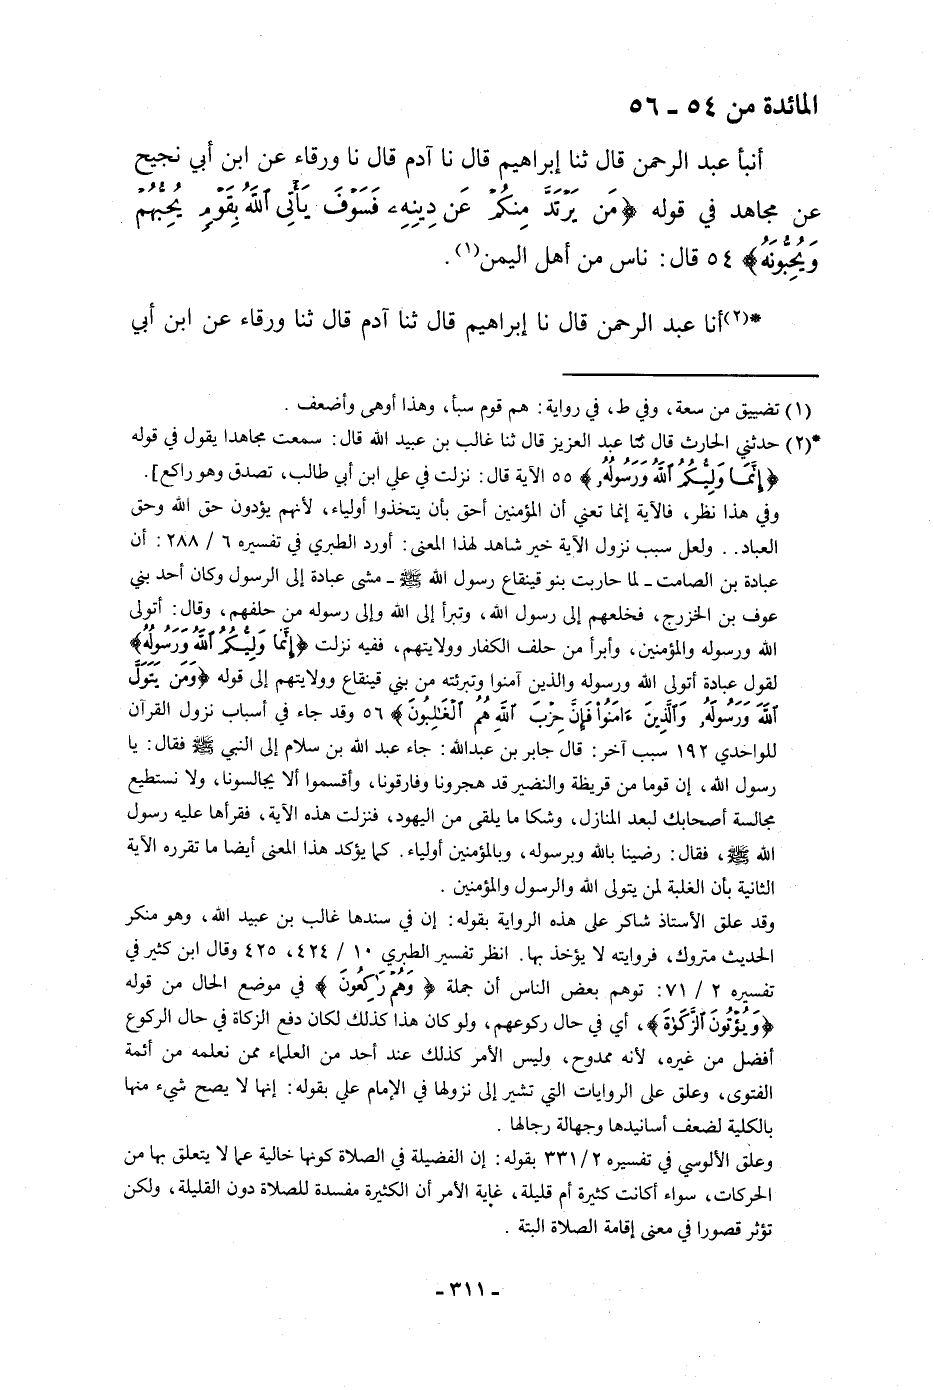 المائدة من ٥٤ ـ ٥٦
أنبأ عبد الرحمن قال ثنا إبراهيم قال نا آدم قال نا ورقاء عن ابن أبي نجيح
عن مجاهد في قوله ﴿مَن يَرْتَدَّ مِنكُمْ عَن دِينِهِۦ فَسَوْفَ يَأْتِى ٱللَّهُ بِقَوْمٍ يُحِبُّهُمْ
وَيُحِبُّونَهُ﴾ ٥٤ قال: ناس من أهل اليمن(١).
*(٢)أنا عبد الرحمن قال نا إبراهيم قال ثنا آدم قال ثنا ورقاء عن ابن أبي
(١) تضييق من سعة، وفي ط، في رواية: هم قوم سبأ، وهذا أوهى وأضعف .
*(٢) حدثني الحارث قال ثنا عبد العزيز قال ثنا غالب بن عبيد الله قال: سمعت مجاهدا يقول في قوله
﴿إِنَّمَا وَلِيُّكُمُ ٱللَّهُ وَرَسُولُهُۥ﴾ ٥٥ الآية قال: نزلت في علي ابن أبي طالب، تصدق وهو راكع].
وفي هذا نظر، فالآية إنما تعني أن المؤمنين أحق بأن يتخذوا أولياء، لأنهم يؤدون حق الله وحق
العباد.. ولعل سبب نزول الآية خير شاهد لهذا المعنى: أورد الطبري في تفسيره ٦ / ٢٨٨: أن
عبادة بن الصامت ـ لما حاربت بنو قينقاع رسول الله ﷺ ـ مشى عبادة إلى الرسول وكان أحد بني
عوف بن الخزرج، فخلعهم إلى رسول الله، وتبرأ إلى الله وإلى رسوله من حلفهم، وقال: أتولى
الله ورسوله والمؤمنين، وأبرأ من حلف الكفار وولايتهم، ففيه نزلت ﴿إِنَّمَا وَلِيُّكُمُ ٱللَّهُ وَرَسُولُهُ﴾
لقول عبادة أتولى الله ورسوله والذين آمنوا وتبرئته من بني قينقاع وولايتهم إلى قوله ﴿وَمَن يَتَوَلَّ
ٱللَّهَ وَرَسُولَهُۥ وَٱلَّذِينَ ءَامَنُوا۟ فَإِنَّ حِزْبَ ٱللَّهِ هُمُ ٱلْغَـٰلِبُونَ﴾ ٥٦ وقد جاء في أسباب نزول القرآن
للواحدي ١٩٢ سبب آخر: قال جابر بن عبدالله: جاء عبد الله بن سلام إلى النبي ﷺ فقال: يا
رسول الله، إن قوما من قريظة والنضير قد هجرونا وفارقونا، وأقسموا ألا يجالسونا، ولا نستطيع
مجالسة أصحابك لبعد المنازل، وشكا ما يلقى من اليهود، فنزلت هذه الآية، فقرأها عليه رسول
الله ﷺ، فقال: رضينا بالله وبرسوله، وبالمؤمنين أولياء. كما يؤكد هذا المعنى أيضا ما تقرره الآية
الثانية بأن الغلبة لمن يتولى الله والرسول والمؤمنين .
وقد علق الأستاذ شاكر على هذه الرواية بقوله: إن في سندها غالب بن عبيد الله، وهو منكر
الحديث متروك، فروايته لا يؤخذ بها. انظر تفسير الطبري ١٠ / ٤٢٤، ٤٢٥ وقال ابن كثير في
تفسيره ٢ / ٧١: توهم بعض الناس أن جملة ﴿ وَهُمْ رَٰكِعُونَ ﴾ في موضع الحال من قوله
﴿وَيُؤْتُونَ ٱلزَّكَوٰةَ﴾، أي في حال ركوعهم، ولو كان هذا كذلك لكان دفع الزكاة في حال الركوع
أفضل من غيره، لأنه ممدوح، وليس الأمر كذلك عند أحد من العلماء ممن نعلمه من أئمة
الفتوى، وعلق على الروايات التي تشير إلى نزولها في الإمام علي بقوله: إنها لا يصح شيء منها
بالكلية لضعف أسانيدها وجهالة رجالها .
وعلق الألوسي في تفسيره ٢/ ٣٣١ بقوله: إن الفضيلة في الصلاة كونها خالية عما لا يتعلق بها من
الحركات، سواء أكانت كثيرة أم قليلة، غاية الأمر أن الكثيرة مفسدة للصلاة دون القليلة، ولكن
تؤثر قصورا في معنى إقامة الصلاة البتة .
ـ ٣١١ ـ